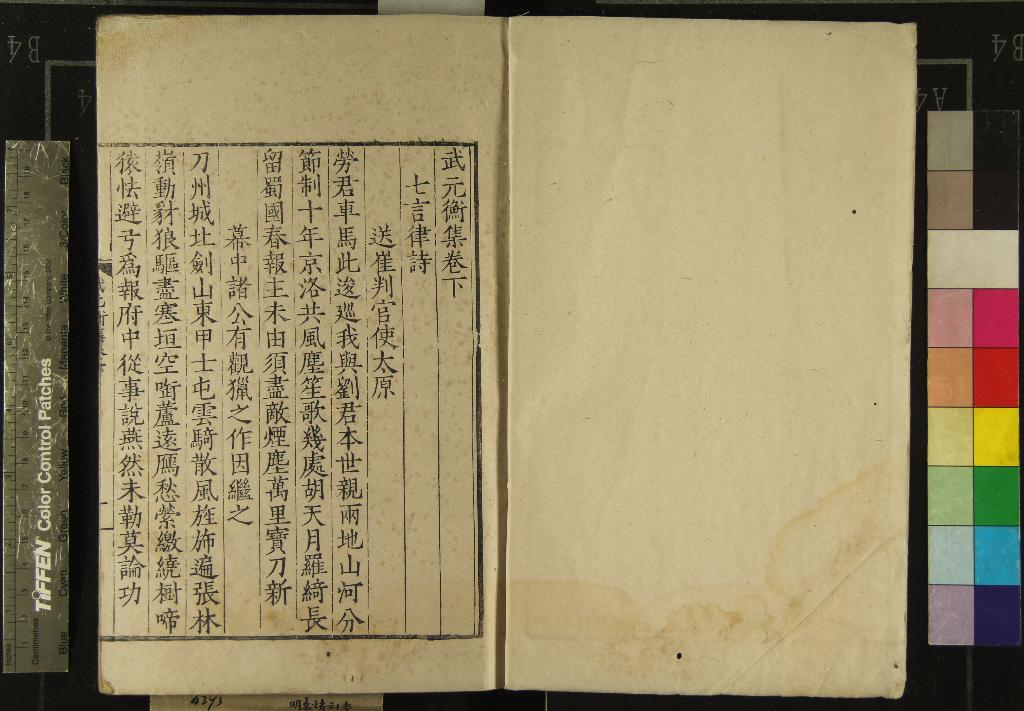 武元衡集卷下
七言律詩
送崔判官使太原
勞君車馬此逡巡我與劉君本世親兩地山河分
節制十年京洛共風塵笙歌幾處胡天月羅綺長
留蜀國春報主未由須盡敵煙塵萬里寶刀新
幕中諸公有觀獵之作因繼之
刀州城北劍山東甲士屯雲騎散風旌斾遍張林
嶺動豺狼驅盡塞垣空銜蘆遠鴈愁縈繳繞樹啼
猿怯避弓爲報府中從事說燕然未勒莫論功
TIFFEN Color Control Patches
Centimetres
Inches
Blue
Cyan
Green
Yellow
Red
Magenta
White
3/Color
Black
B4
A4
B4
4293